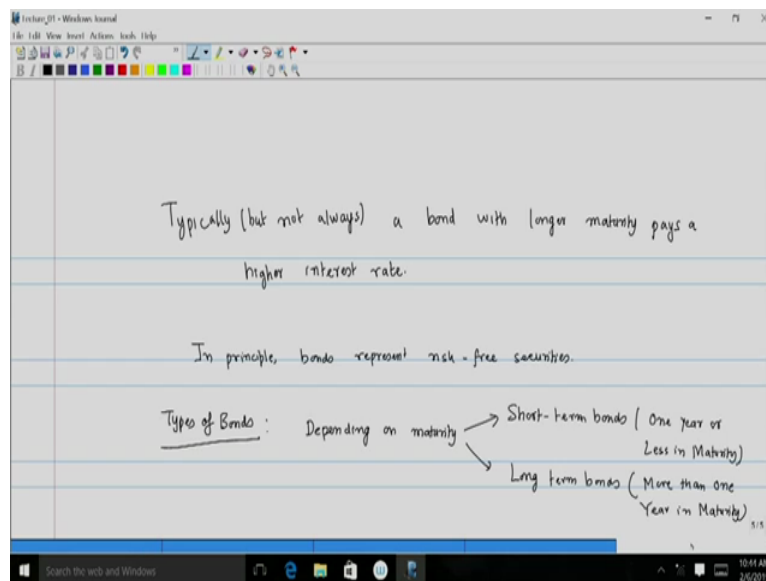 Lecture_01 - Windows Journal
File Edit View Insert Actions Tools Help
B I
Typically (but not always) a bond with longer maturity pays a
higher interest rate.
In principle, bonds represent risk-free securities.
Types of Bonds : Depending on maturity
Short-term bonds ( One year or
Less in Maturity)
Long term bonds ( More than one
Year in Maturity)
5/5
Search the web and Windows
10:44 AM